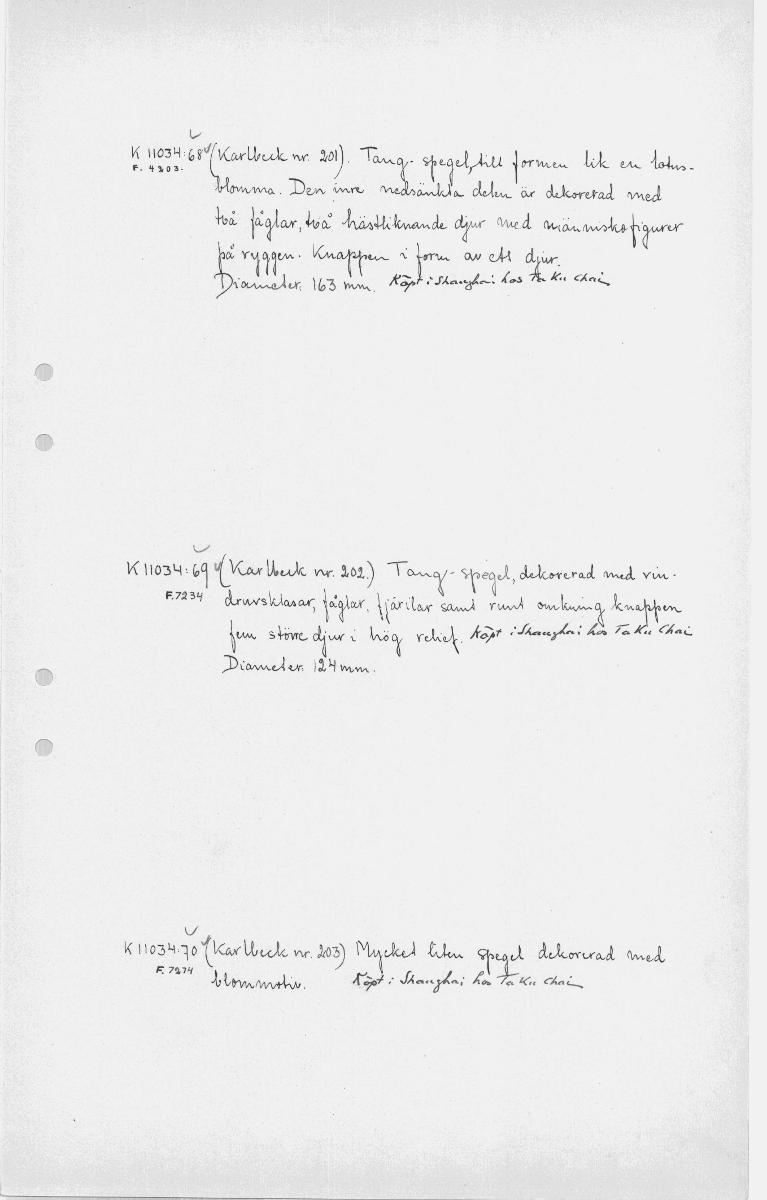 K 11034:68 (Karlbeck nr. 201). Tang-spegel, till formen lik en lotus-
F. 4303.
blomma. Den inre nedsänkta delen är dekorerad med
två fåglar, två hästliknande djur med människofigurer
på ryggen. Knappen i form av ett djur.
Diameter: 163 mm. Köpt i Shanghai hos Ta Ku Chai
K 11034:69 (Karlbeck nr. 202.) Tang-spegel, dekorerad med vin-
F. 7234 druvsklasar, fåglar, fjärilar samt runt omkring knappen
fem större djur i hög relief. Köpt i Shanghai hos Ta Ku Chai
Diameter: 124 mm.
K 11034:70 (Karlbeck nr. 203) Mycket liten spegel dekorerad med
F. 7274 blommotiv. Köpt i Shanghai hos Ta Ku Chai